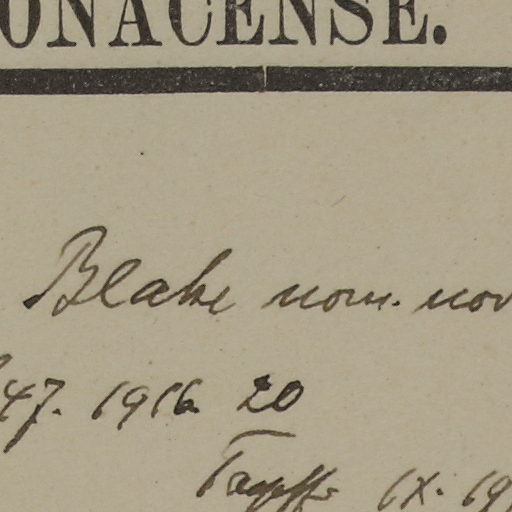 ONACENSE.
Blake nom. nov
47. 1916 20
IX. 19